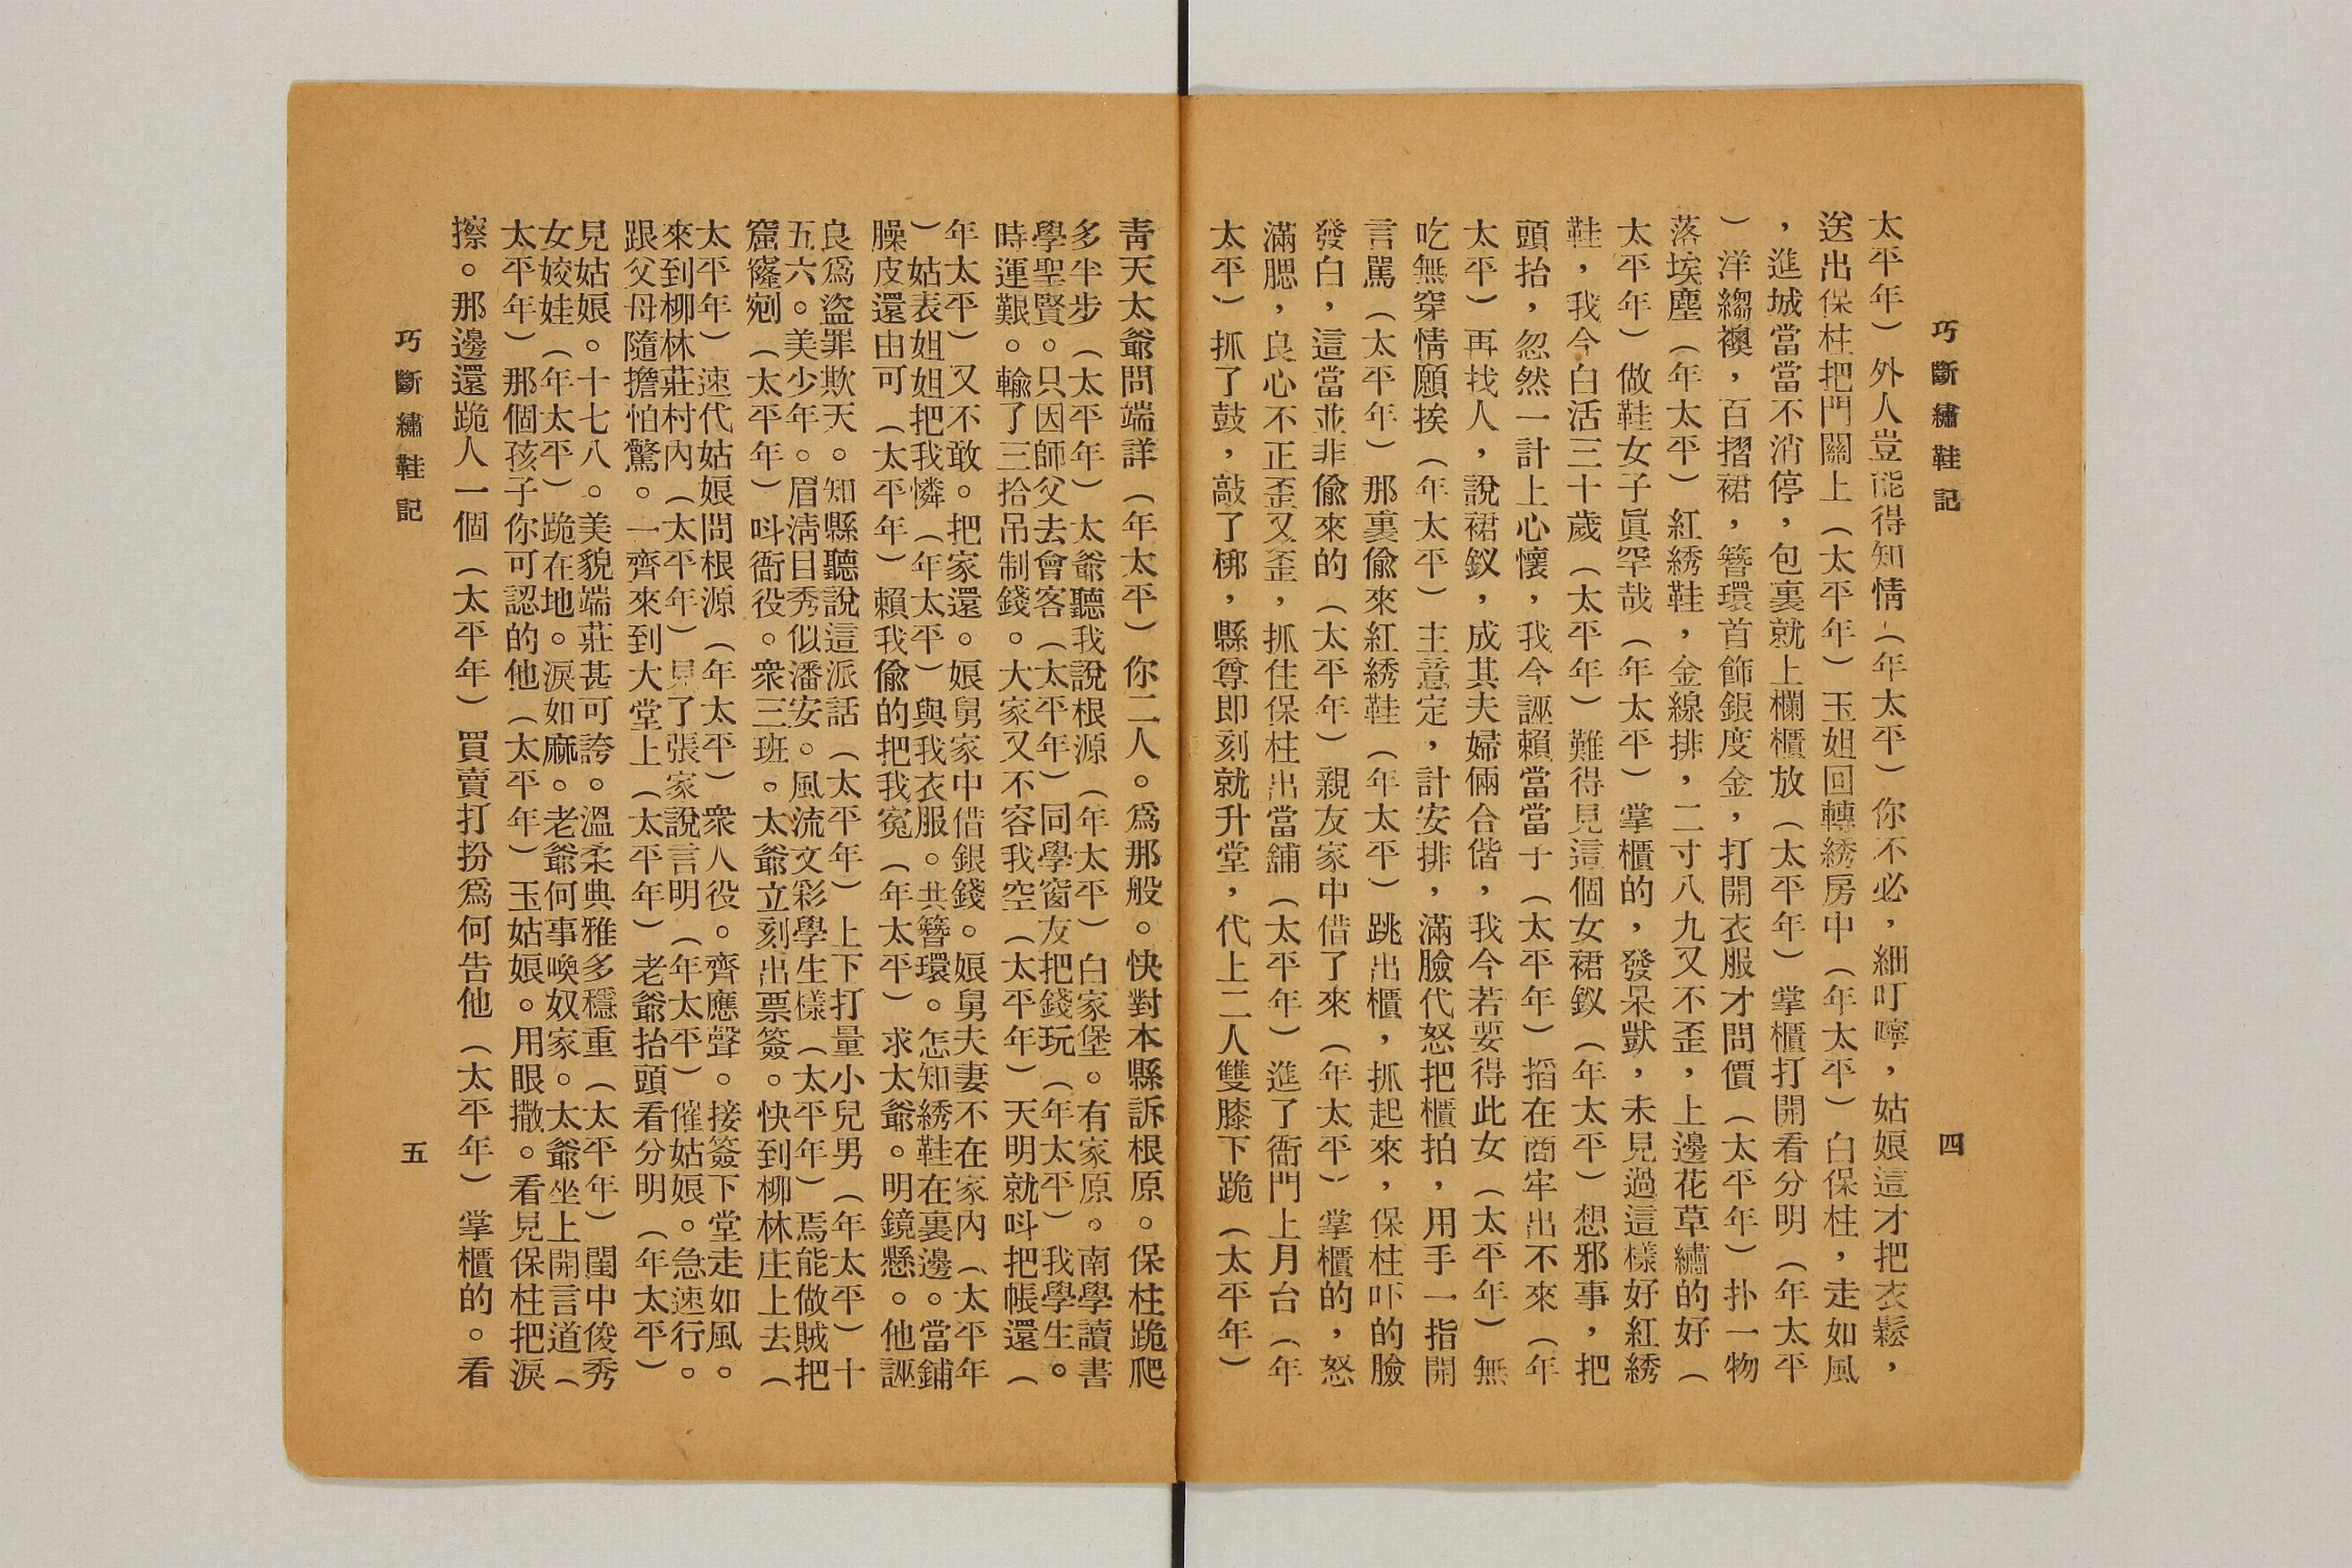 巧斷繡鞋記
四
太平年）外人豈能得知情（年太平）你不必，細叮嚀，姑娘這才把衣鬆，
送出保柱把門關上（太平年）玉姐回轉綉房中（年太平）白保柱，走如風
，進城當當不消停，包裹就上欄櫃放（太平年）掌櫃打開看分明（年太平
）洋縐襖，百摺裙，簪環首飾銀度金，打開衣服才問價（太平年）扑一物
落埃塵（年太平）紅綉鞋，金線排，二寸八九又不歪，上邊花草繡的好（
太平年）做鞋女子眞罕哉（年太平）掌櫃的，發呆獃，未見過這樣好紅綉
鞋，我今白活三十歲（太平年）難得見這個女裙釵（年太平）想邪事，把
頭抬，忽然一計上心懷，我今誣賴當當子（太平年）搯在商牢出不來（年
太平）再找人，說裙釵，成其夫婦倆合偕，我今若要得此女（太平年）無
吃無穿情願挨（年太平）主意定，計安排，滿臉代怒把櫃拍，用手一指開
言罵（太平年）那裏偸來紅綉鞋（年太平）跳出櫃，抓起來，保柱吓的臉
發白，這當並非偸來的（太平年）親友家中借了來（年太平）掌櫃的，怒
滿腮，良心不正歪又歪，抓住保柱出當舖（太平年）進了衙門上月台（年
太平）抓了鼓，敲了梆，縣尊即刻就升堂，代上二人雙膝下跪（太平年）
青天太爺問端詳（年太平）你二人。爲那般。快對本縣訴根原。保柱跪爬
多半步（太平年）太爺聽我說根源（年太平）白家堡。有家原。南學讀書
學聖賢。只因師父去會客（太平年）同學窗友把錢玩（年太平）我學生。
時運艱。輸了三拾吊制錢。大家又不容我空（太平年）天明就呌把帳還（
年太平）又不敢。把家還。娘舅家中借銀錢。娘舅夫妻不在家內（太平年
）姑表姐姐把我憐（年太平）與我衣服。共簪環。怎知綉鞋在裏邊。當鋪
臊皮還由可（太平年）賴我偸的把我冤（年太平）求太爺。明鏡懸。他誣
良爲盜罪欺天。知縣聽說這派話（太平年）上下打量小兒男（年太平）十
五六。美少年。眉淸目秀似潘安。風流文彩學生樣（太平年）焉能做賊把
窟窿剜（太平年）呌衙役。衆三班。太爺立刻出票簽。快到柳林庄上去（
太平年）速代姑娘問根源（年太平）衆人役。齊應聲。接簽下堂走如風。
來到柳林莊村內（太平年）見了張家說言明（年太平）催姑娘。急速行。
跟父母隨擔怕驚。一齊來到大堂上（太平年）老爺抬頭看分明（年太平）
見姑娘。十七八。美貌端莊甚可誇。溫柔典雅多穩重（太平年）閨中俊秀
女姣娃（年太平）跪在地。淚如麻。老爺何事喚奴家。太爺坐上開言道（
太平年）那個孩子你可認的他（太平年）玉姑娘。用眼撒。看見保柱把淚
擦。那邊還跪人一個（太平年）買賣打扮爲何告他（太平年）掌櫃的。看
巧斷繡鞋記
五